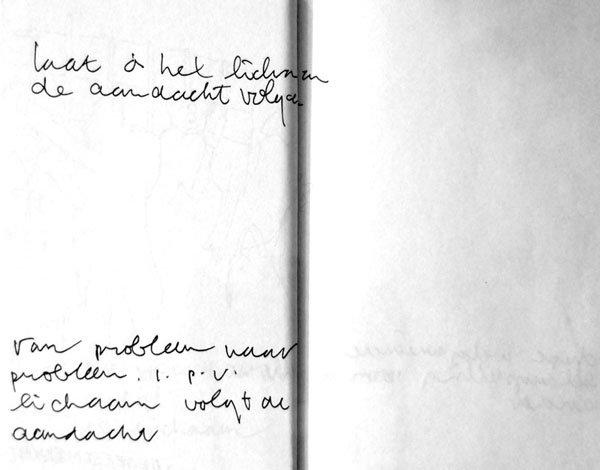 laat è het lichaam
de aandacht volgen
van probleem naar
probleem. i. p. v.
lichaam volgt de
aandacht